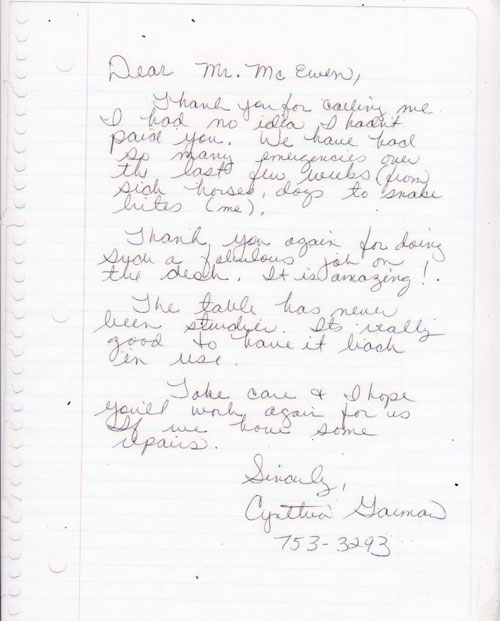 Dear Mr. McEwen,
Thank you for calling me.
I had no idea I hadn't
paid you. We have had
so many emergencies over
the last few weeks (from
sick horses, dogs to snake
bites (me).
Thank you again for doing
such a fabulous job on
the desk. It is amazing!
The table has never
been sturdier. Its really
good to have it back
in use.
Take care & I hope
you'll work again for us
If we have some
repairs.
Sincerely,
Cynthia
753-3293